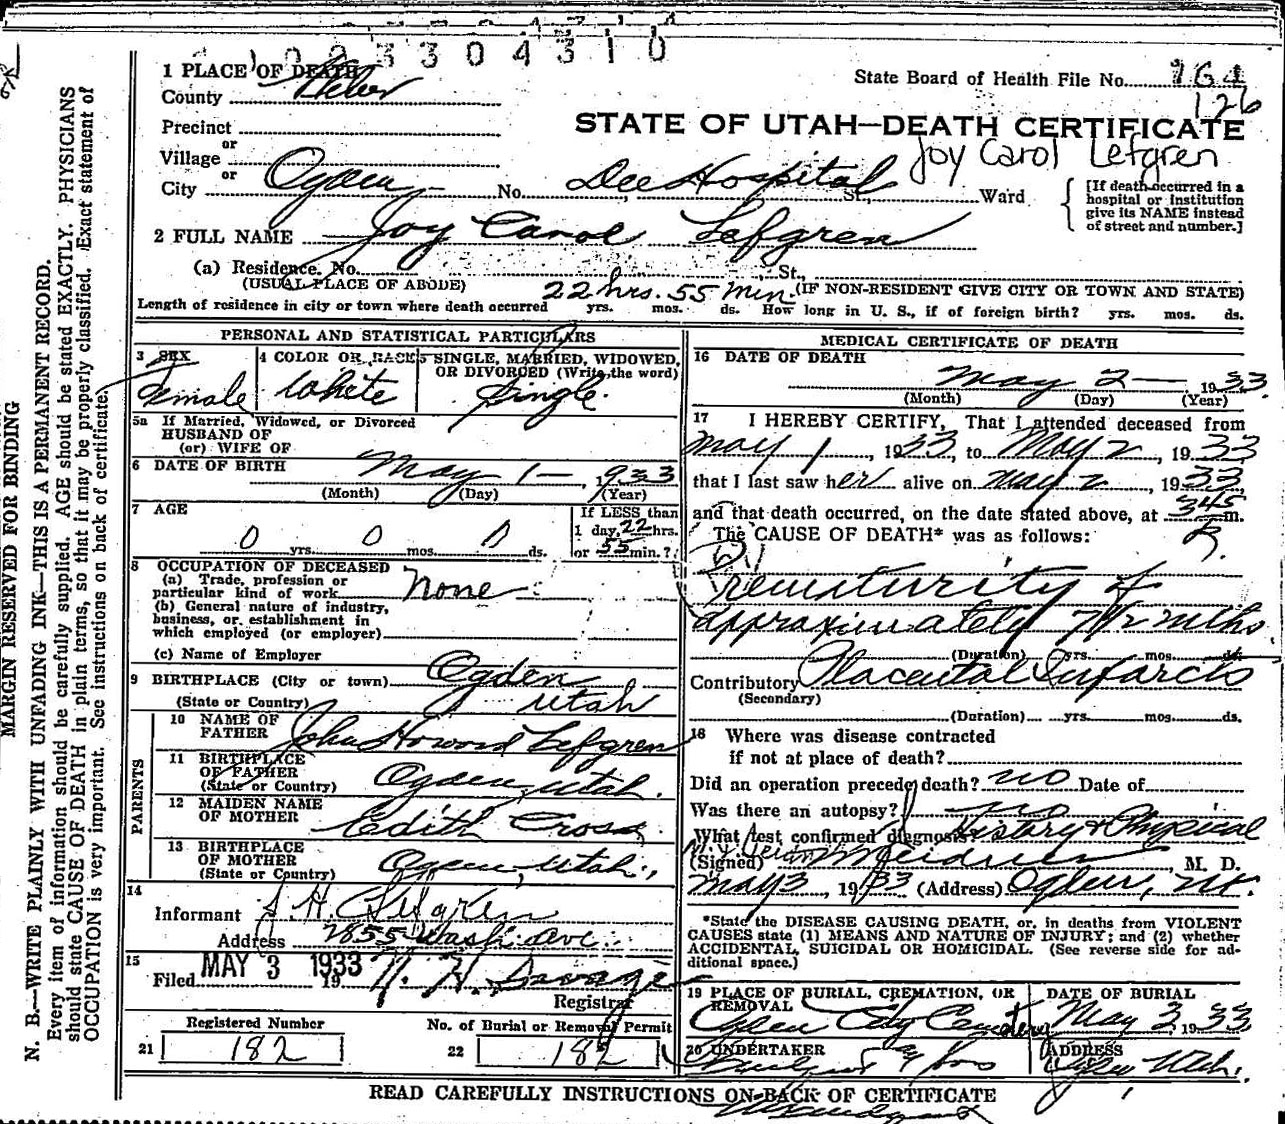 1 PLACE OF DEATH
County Weber
State Board of Health File No. 164
126
Precinct
or
Village
or
City Ogden No. Dee Hospital St., Ward
STATE OF UTAH—DEATH CERTIFICATE
Joy Carol Lefgren
[If death occurred in a
hospital or institution
give its NAME instead
of street and number.]
2 FULL NAME Joy Carol Lefgren
(a) Residence. No. St.,
(USUAL PLACE OF ABODE) 22 hrs. 55 min. (IF NON-RESIDENT GIVE CITY OR TOWN AND STATE)
Length of residence in city or town where death occurred yrs. mos. ds. How long in U. S., if of foreign birth? yrs. mos. ds.
PERSONAL AND STATISTICAL PARTICULARS
3 SEX
Female
4 COLOR OR RACE
White
5 SINGLE, MARRIED, WIDOWED,
OR DIVORCED (Write the word)
Single.
5a If Married, Widowed, or Divorced
HUSBAND OF
(or) WIFE OF
6 DATE OF BIRTH May 1 — 1933
(Month) (Day) (Year)
7 AGE
0 yrs. 0 mos. 0 ds.
If LESS than
1 day, 22 hrs.
or 55 min.?
8 OCCUPATION OF DECEASED
(a) Trade, profession or
particular kind of work None
(b) General nature of industry,
business, or establishment in
which employed (or employer)
(c) Name of Employer
9 BIRTHPLACE (City or town) Ogden
(State or Country) Utah
PARENTS
10 NAME OF
FATHER John Howard Lefgren
11 BIRTHPLACE
OF FATHER
(State or Country) Ogden, Utah.
12 MAIDEN NAME
OF MOTHER Edith Cross
13 BIRTHPLACE
OF MOTHER
(State or Country) Ogden, Utah.
14
Informant J. H. Lefgren
Address 2855 Wash. Ave.
15
Filed MAY 3 1933 19
Registrar
Registered Number
21 182
No. of Burial or Removal Permit
22 182
MEDICAL CERTIFICATE OF DEATH
16 DATE OF DEATH
May 2 — 1933
(Month) (Day) (Year)
17 I HEREBY CERTIFY, That I attended deceased from
May 1, 1933, to May 2, 1933
that I last saw her alive on May 2, 1933,
and that death occurred, on the date stated above, at 345 m.
The CAUSE OF DEATH* was as follows:
Prematurity of
approximately 7 1/2 mths.
(Duration) yrs. mos. ds.
Contributory Placental Infarcts
(Secondary)
(Duration) yrs. mos. ds.
18 Where was disease contracted
if not at place of death?
Did an operation precede death? no Date of
Was there an autopsy? no
What test confirmed diagnosis? History & Physical
(Signed) M. D.
May 3, 1933 (Address) Ogden, Ut.
*State the DISEASE CAUSING DEATH, or, in deaths from VIOLENT
CAUSES state (1) MEANS AND NATURE OF INJURY; and (2) whether
ACCIDENTAL, SUICIDAL OR HOMICIDAL. (See reverse side for ad-
ditional space.)
19 PLACE OF BURIAL, CREMATION, OR
REMOVAL
Ogden City Cemetery
DATE OF BURIAL
May 3, 1933
20 UNDERTAKER
ADDRESS
Ogden Utah.
READ CAREFULLY INSTRUCTIONS ON BACK OF CERTIFICATE
MARGIN RESERVED FOR BINDING
N. B.—WRITE PLAINLY WITH UNFADING INK—THIS IS A PERMANENT RECORD.
Every item of information should be carefully supplied. AGE should be stated EXACTLY. PHYSICIANS
should state CAUSE OF DEATH in plain terms, so that it may be properly classified. Exact statement of
OCCUPATION is very important. See instructions on back of certificate.